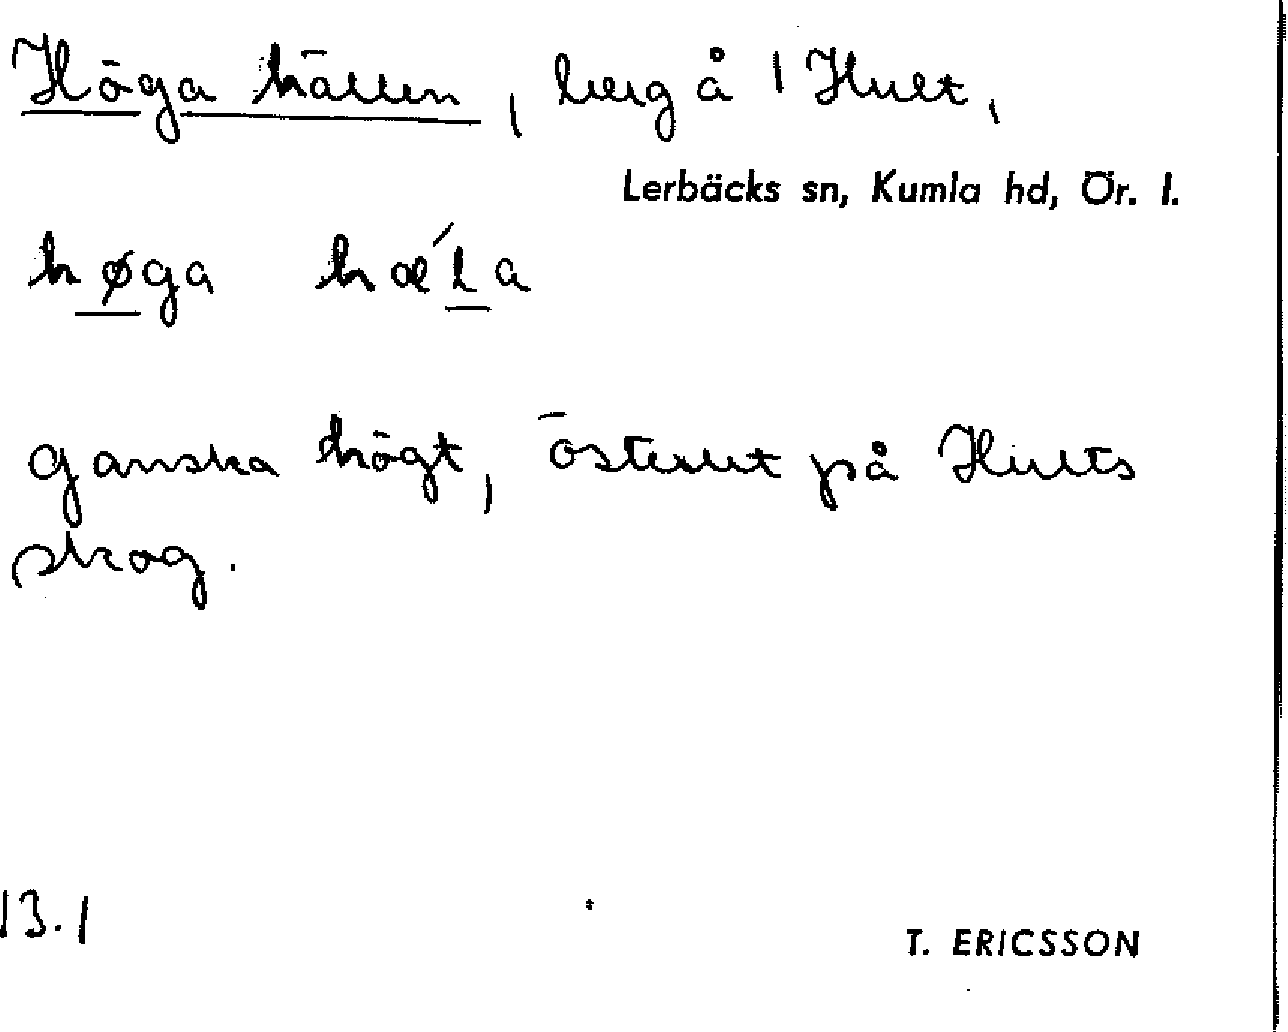 Höga hällen, berg å 1 Hult,
Lerbäcks sn, Kumla hd, Ör. l.
høga hǽla
ganska högt, österut på Hults
skog.
13.1
T. ERICSSON